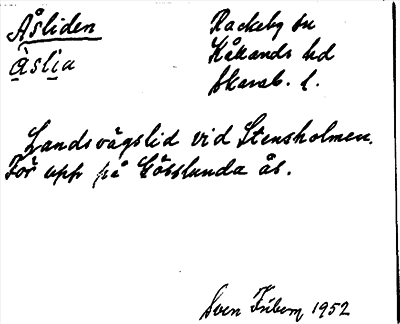 Åsliden
Åslia
Rackeby sn
Kållands hd
Skarab. l.
Landsvägslid vid Stensholmen.
För upp på Gösslunda ås.
Sven 1952